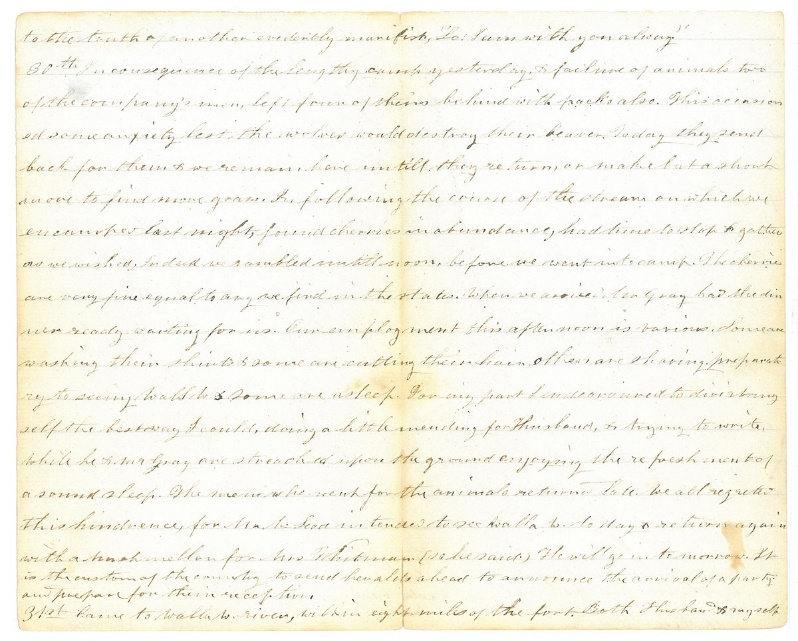 to the truth of another evidently manifist, "Lo: I am with you alway"
30th In consequence of the lengthy camp yesterday, & failure of animals two
of the company's men, left four of theirs behind with packs also. This occasion
ed some anxiety lest the wolves would destroy their beaver. Today they send
back for them & we remain here untill they return, or make but a short
move to find more grass. In following the course of the stream on which we
encamped last night, found cherries in abundance, had time to stop & gather
as we wished, indeed we rambled untill noon, before we went into camp. The cherries
are very fine equal to any we find in the states. When we arrived Mr Gray had the din
ner ready waiting for us. Our employment this afternoon is various. Some are
washing their shirts & some are cutting their hair, others are shaving preparato
ry to seeing Walla W. & some are asleep. For my part I endeavoured to divert my
self the best way I could, doing a little mending for Husband, & trying to write,
while he & Mr Gray are streached upon the ground enjoying the refreshment of
a sound sleep. The men who went for the animals returned late. We all regretted
this hindrence, for Mr McLeod intended to see Walla W. to day & return again
with a mushmellon for Mrs Whitman (so he said) He will go in to morrow. It
is the custom of the country to send heralds ahead to announce the arival of a party
and prepare for their reception.
31st Came to Walla W. river, within eight miles of the fort. Both Husband & myself